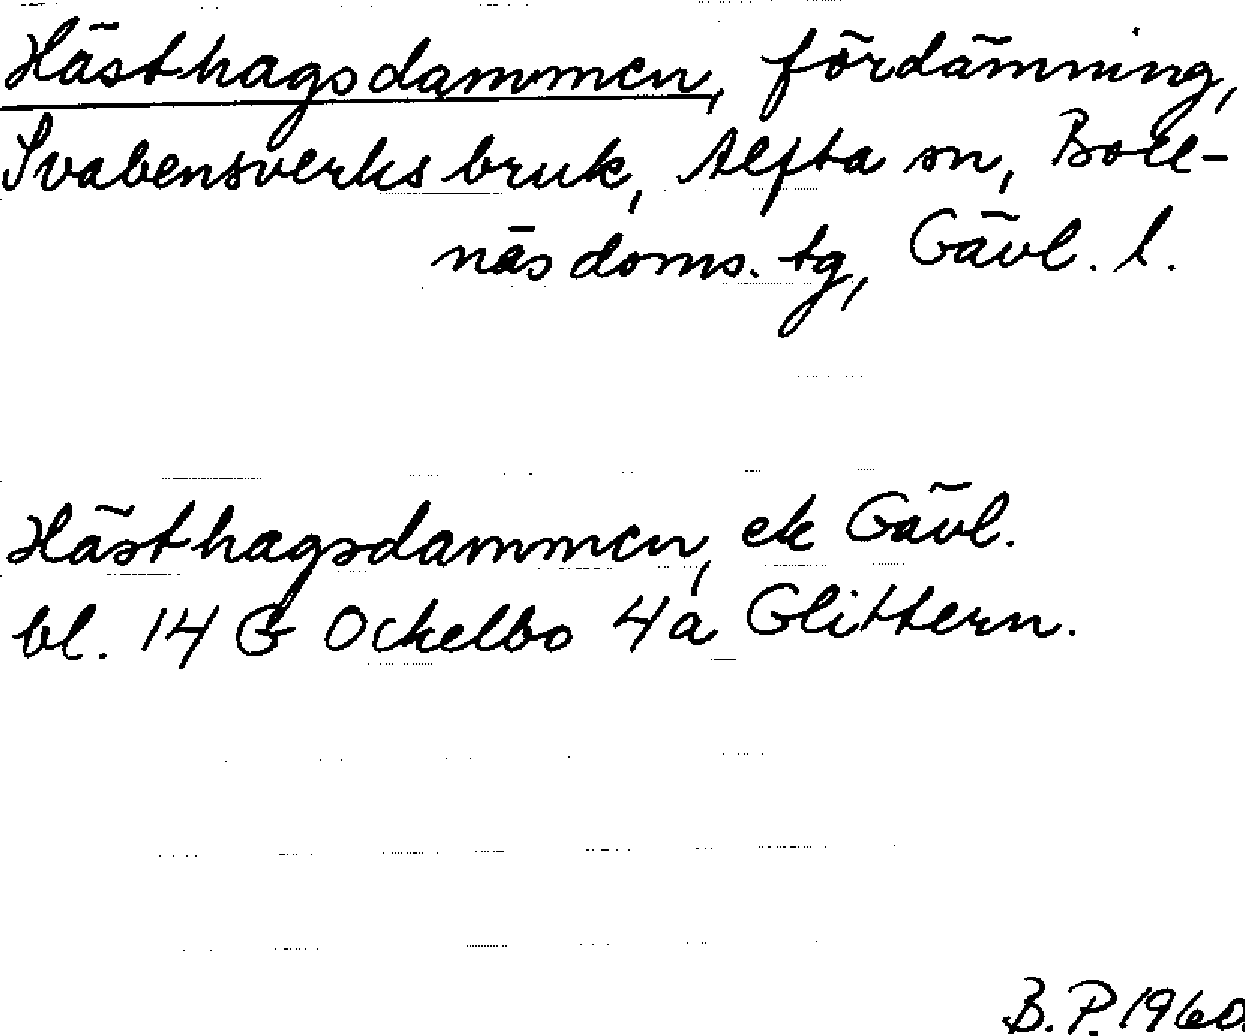 Hästhagsdammen, fördämning,
Svabensverks bruk, Alfta sn, Boll-
näs doms. tg, Gävl. l.
Hästhagsdammen, ek Gävl.
bl. 14 G Ockelbo 4a Glittern.
B.P. 1960